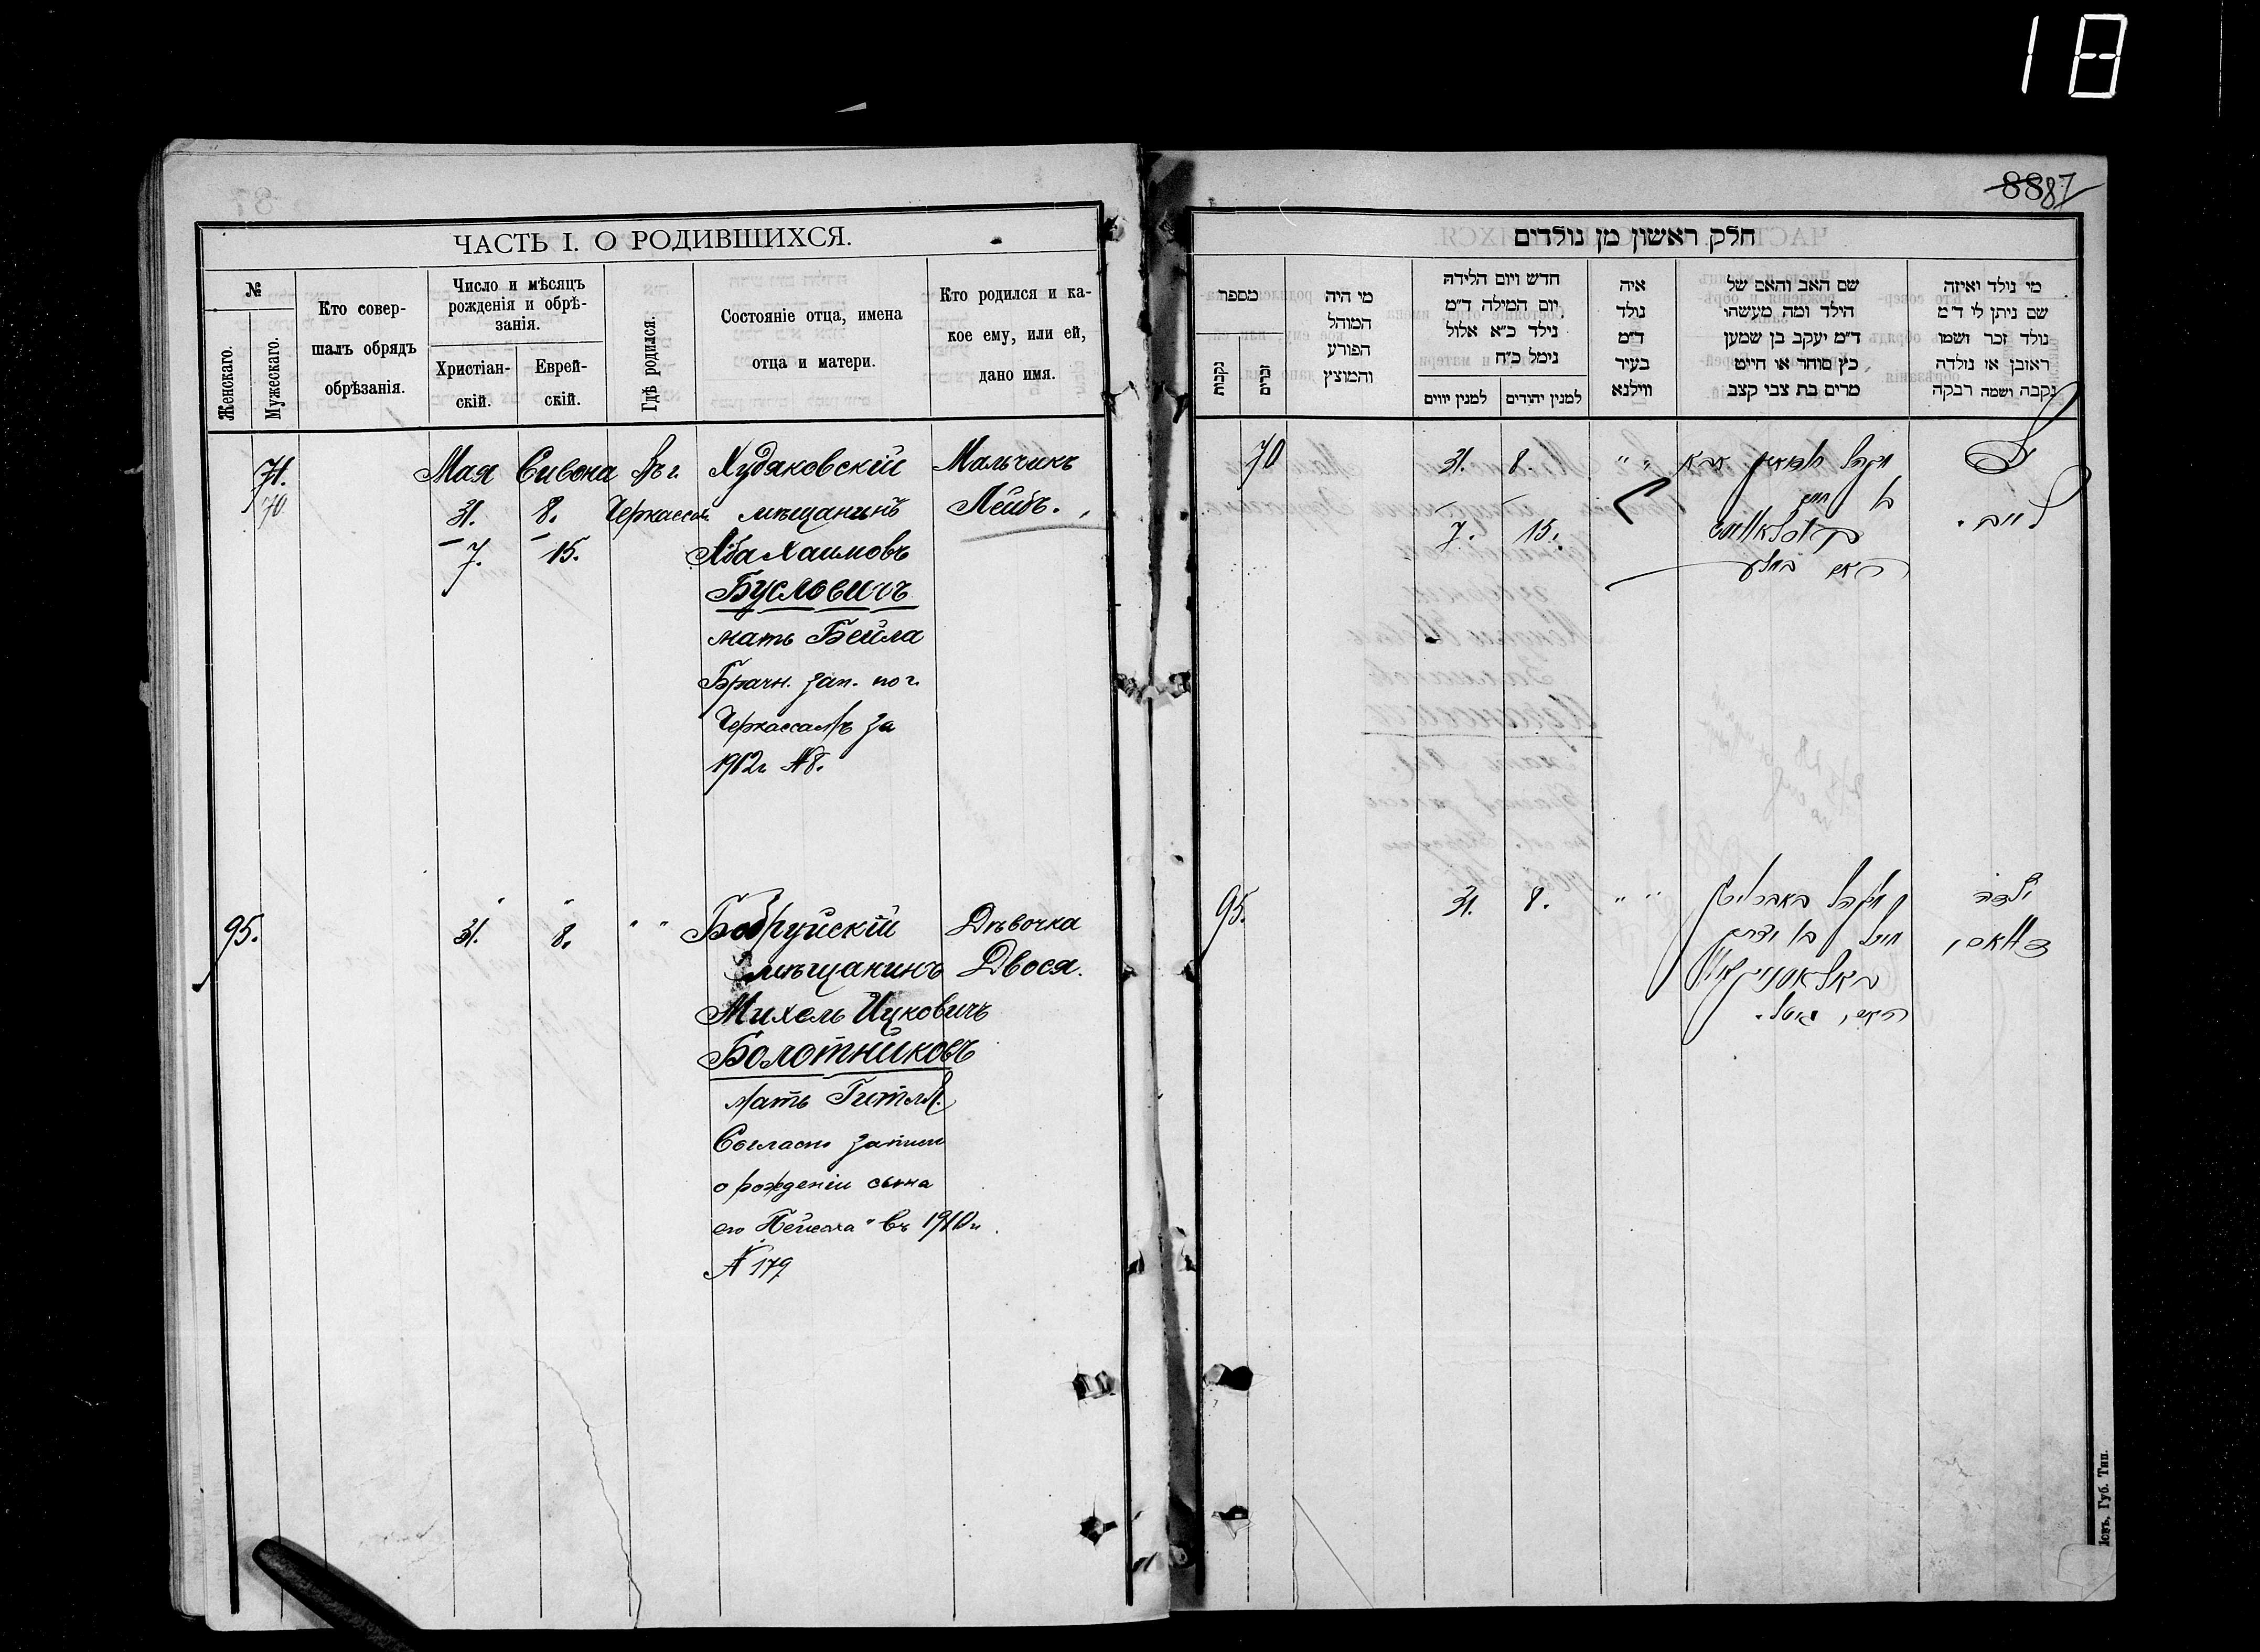 18
88 87
ЧАСТЬ I. О РОДИВШИХСЯ.
№
Женскаго.
Мужескаго.
Кто совер-
шалъ обрядъ
обрѣзанія.
Число и мѣсяцъ
рожденія и обрѣ-
занія.
Христіан-
скій.
Еврей-
скій.
Гдѣ родился.
Состояніе отца, имена
отца и матери.
Кто родился и ка-
кое ему, или ей,
дано имя.
71.
70
Мая
31.
7.
Сивона
8.
15.
Въ г.
Черкассах.
Худяковскій
мѣщанинъ
Аба Хаимовъ
Бусловичъ
мать Бейла
Брачн. зап. по г.
Черкассамъ за
1912 г. №8.
Мальчикъ
Лейбъ.
95.
" "
31. 8. " "
Бобруйскій
мѣщанинъ
Михель Ицковичъ
Болотниковъ
мать Гитля.
Согласно записи
о рожденіи сына
его въ 1910 г.
№ 179
Дѣвочка
Двося.
חלק ראשון מן נולדים
מספר
נקבות
זכרים
מי היה
המוהל
הפורע
והמוצץ
חדש ויום הלידה
יום המילה ד״מ
נילד כ״א אלול
נימל כ״ח
למנין יווים
למנין יהודים
איה
נולד
ד״מ
בעיר
ווילנא
שם האב והאם של
הילד ומה מעשהו
ד״מ יעקב בן שמען
כץ סוחר או חייט
מרים בת צבי קצב
מי נולד ואיזה
שם ניתן לי ד״מ
נולד זכר ושמו
ראובן או נולדה
נקבה ושמה רבקה
70
31. 8. " "
7. 15.
אבא
בן חיים
האם ביילע
לייב.
95.
31. 8. " "
מיכל בן
האם גיטל.
ילדה
דוואסי
Губ. Тип.